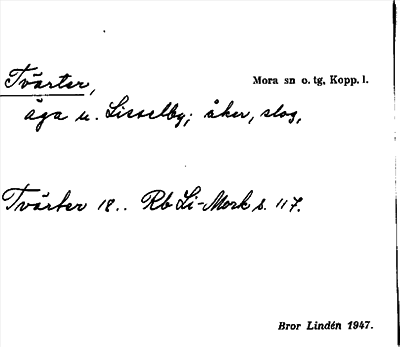 Tvärter, Mora sn o. tg, Kopp. l.
äga u. Lisselby; åker, slog,
Tvärter 18.. Rb Li-Mork s. 117.
Bror Lindén 1947.